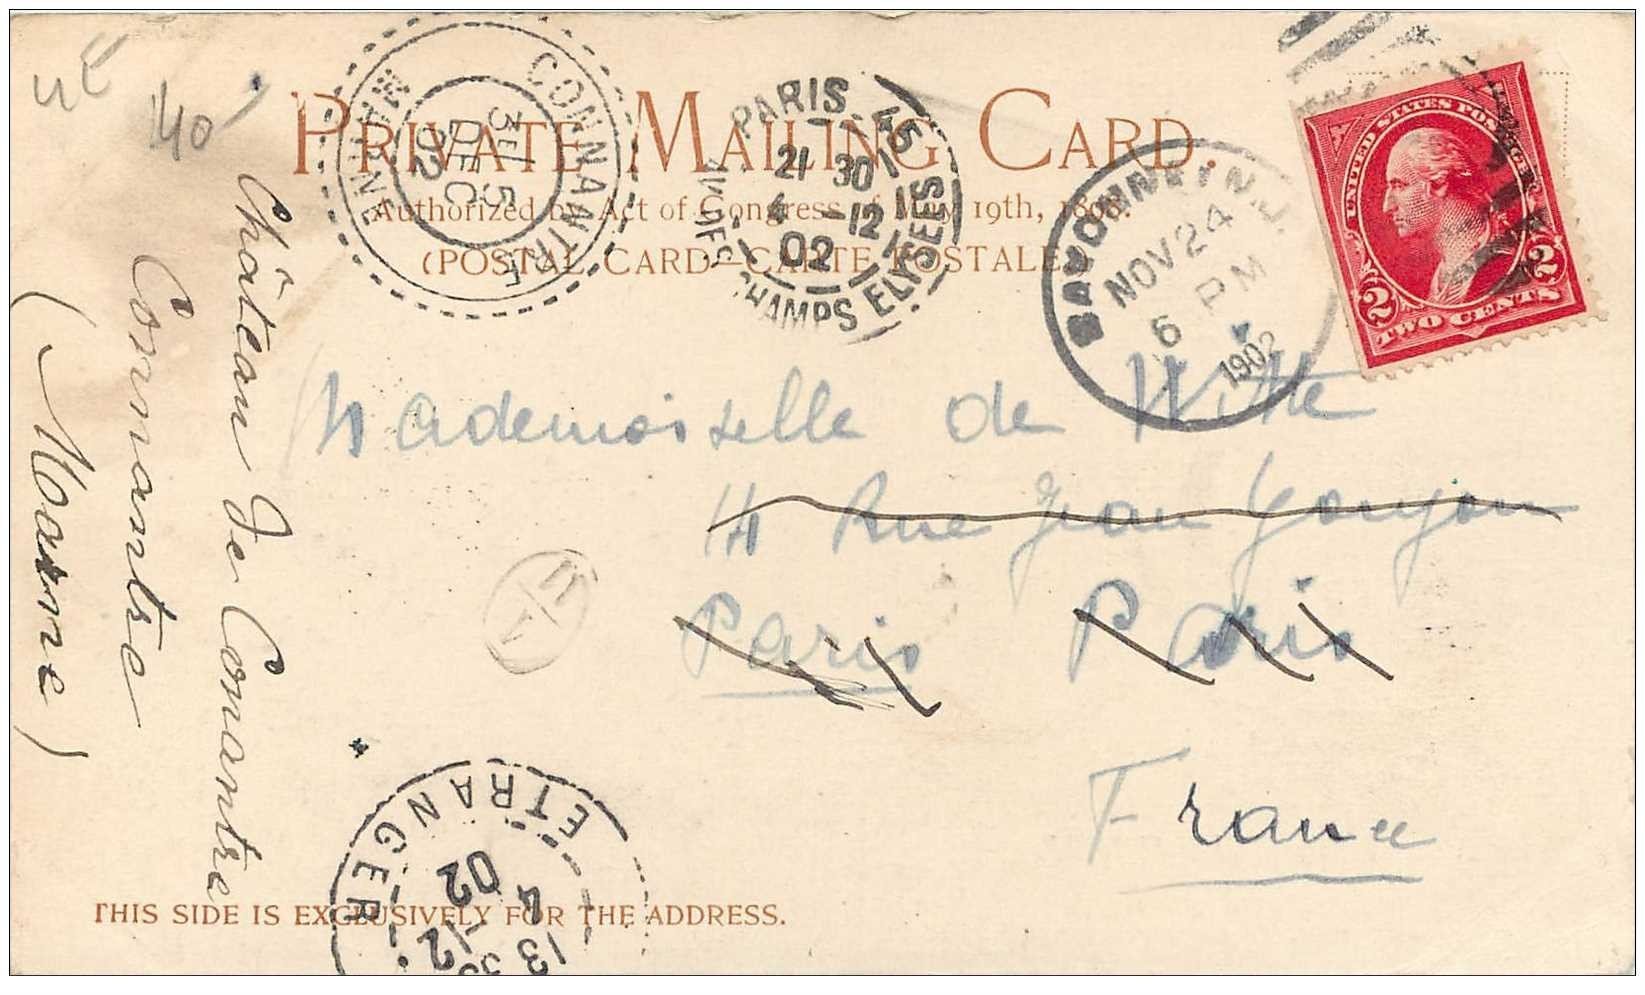 UE
140
PRIVATE MAILING CARD.
Authorized by Act of Congress of May 19th, 1898.
(POSTAL CARD—CARTE POSTALE)
CONNANTRE
MARNE
5
DEC
02
PARIS 45
21 30
4 -12
02
AV. DES CHAMPS ELYSEES
BAYONNE, N.J.
NOV 24
6 PM
1902
UNITED STATES POSTAGE
2 2
TWO CENTS
Mademoiselle de Witte
14 Rue Jean Goujon
Paris Paris
France
Château de Connantre
Connantre
(Marne)
T
ETRANGER
4 -12
02
THIS SIDE IS EXCLUSIVELY FOR THE ADDRESS.